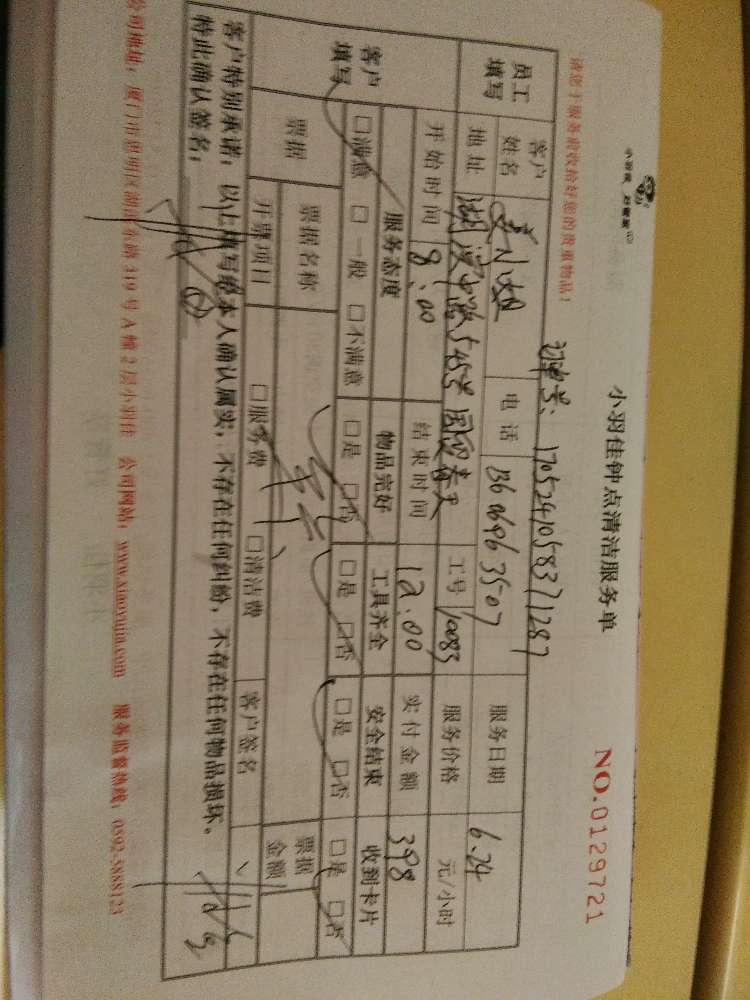 小羽佳 好管家
小羽佳钟点清洁服务单
NO.0129721
请您于服务前收拾好您的贵重物品!
订单号: 1705241058371287
员工填写
客户姓名
姜小姐
电话
136 0696 3507
服务日期
6.24
地址
湖滨中路545号
春天
工号
10083
服务价格
元/小时
开始时间
8:00
结束时间
12:00
实付金额
398
客户填写
服务态度
物品完好
工具齐全
安全结束
收到卡片
□满意 □一般 □不满意
□是 □否
□是 □否
□是 □否
□是 □否
票据
票据名称
票据金额
开票项目
□服务费 □清洁费
客户签名
客户特别承诺:以上填写经本人确认属实,不存在任何纠纷,不存在任何物品损坏。
特此确认签名:
公司地址:厦门市思明区湖滨东路319号A幢2层小羽佳 公司网站:www.xiaoyujia.com 服务监督热线:0592-5888123